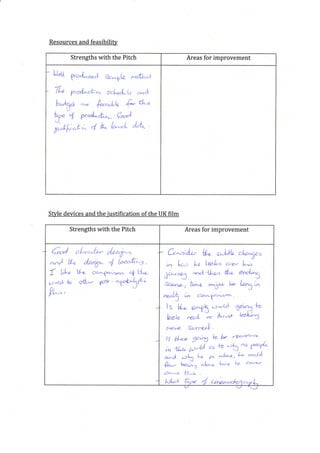 Resources and feasibility
Strengths with the Pitch
Areas for improvement
- Well produced sample material
- The production schedule and
budget are feasible for this
type of production. Good
justification of the launch date.
Style devices and the justification of the UK film
Strengths with the Pitch
Areas for improvement
- Good character designs
and the design of locations.
I like the comparison of the
world to other post-apocalyptic
films.
- Consider the subtle changes
in how he looks over his
journey and then the ending
scene, time might be long in
reality in comparison.
- Is the empty world going to
look real or more looking
more surreal.
- Is there going to be reasons
in this world as to why no people
and why he is alone, he would
fear being alone have to
come this.
- What type of cinematography